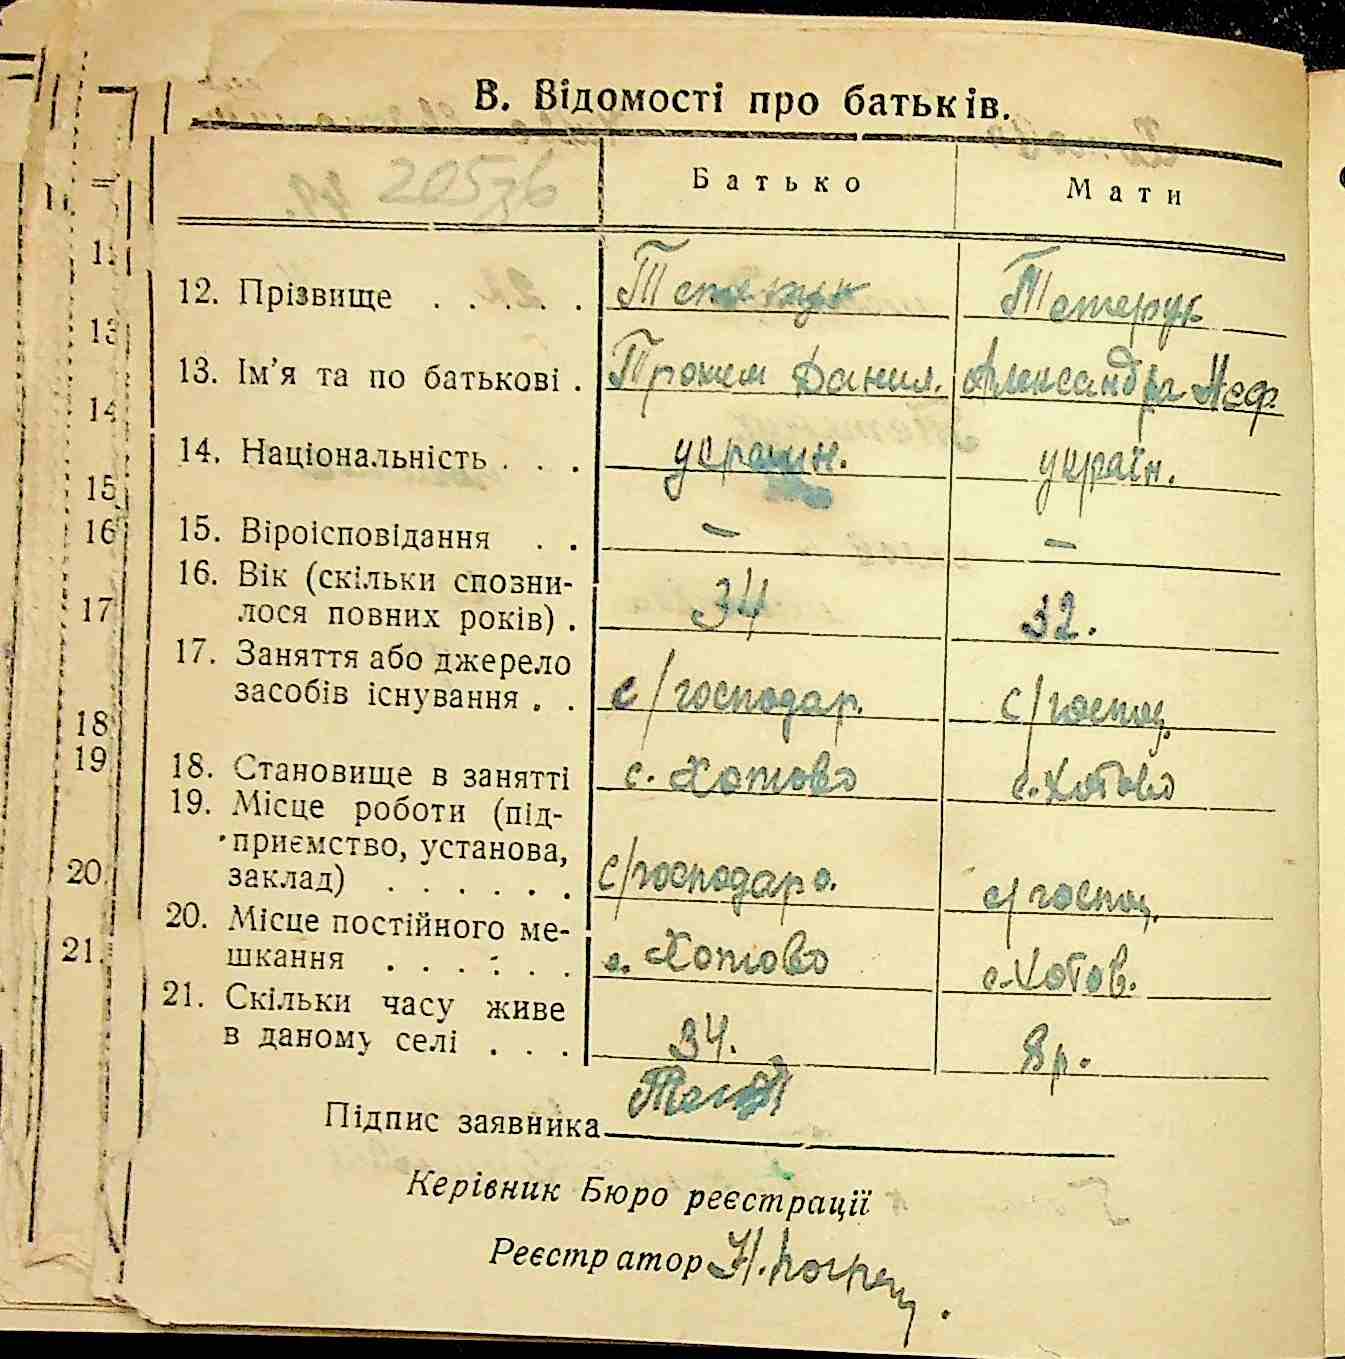 В. Відомості про батьків.
20536
Батько Мати
11
12. Прізвище . . . . . Тетерук Тетерук
13
13. Ім'я та по батькові . Трохем Данил. Александра Неф.
14
14. Національність . . . україн. україн.
15
15. Віроісповідання . . — —
16
16. Вік (скільки спозни-
лося повних років) . 34 32.
17
17. Заняття або джерело
засобів існування . . с/господар. с/господ.
18
18. Становище в занятті с. Хотово с. Хотово
19
19. Місце роботи (під-
приємство, установа,
заклад) . . . . . . с/господаро. с/господ.
20.
20. Місце постійного ме-
шкання . . . . . . с. Хотово с. Хотов.
21.
21. Скільки часу живе
в даному селі . . . 34. 8 р.
Підпис заявника
Керівник Бюро реєстрації
Реєстратор